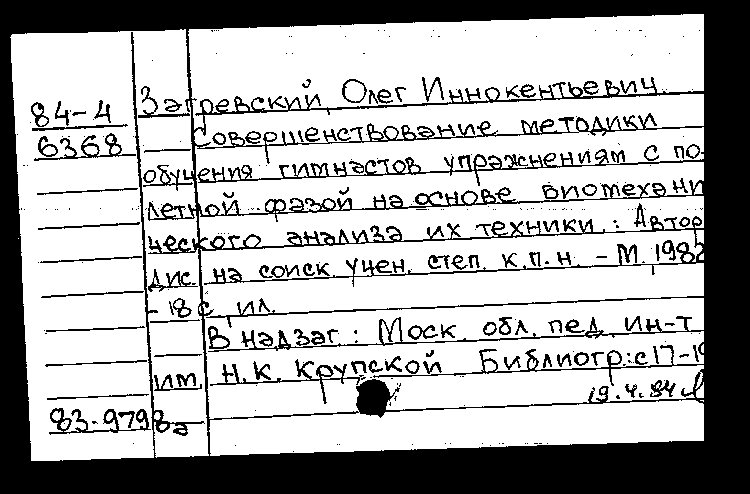 84-4 Загревский, Олег Иннокентьевич
6368 Совершенствование методики
обучения гимнастов упражнениям с по-
летной фазой на основе биомехани
ческого анализа их техники.: Автор
дис. на соиск. учен. степ. к.п.н. - М, 1982
- 18 с, ил.
В надзаг.: Моск. обл. пед. ин-т
им. Н.К. Крупской Библиогр.: с 17-
19.4.84
83-9798а